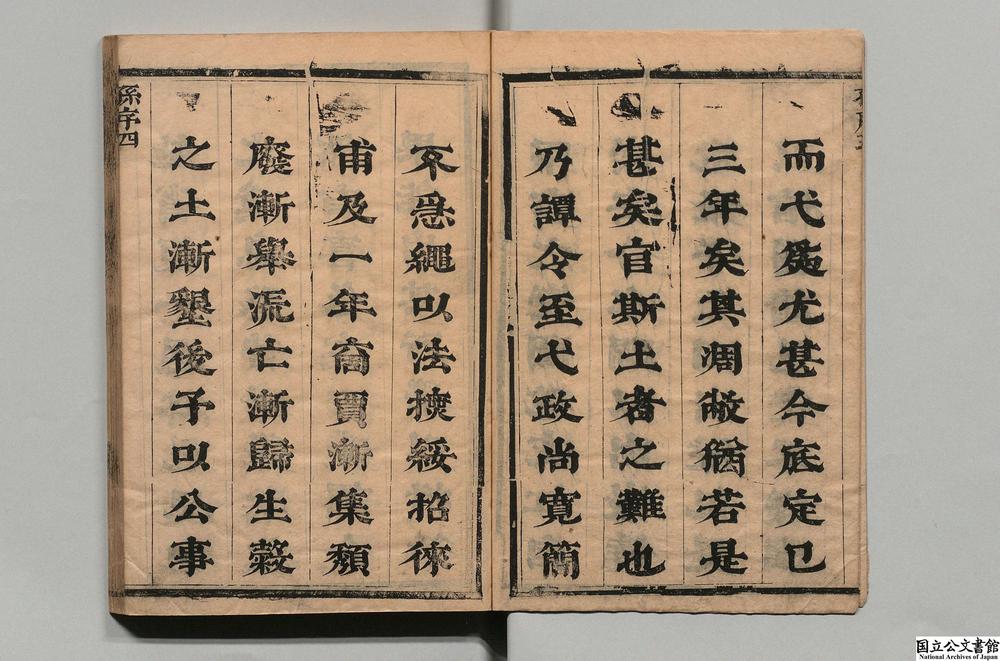 而弋爲尤甚今底定已
三年矣其凋敝猶若是
甚矣官斯土者之難也
乃譚令至弋政尚寬簡
不急繩以法懷綏招徠
甫及一年商賈漸集頽
廢漸舉流亡漸歸生穀
之土漸墾後予以公事
孫序四
国立公文書館
National Archives of Japan